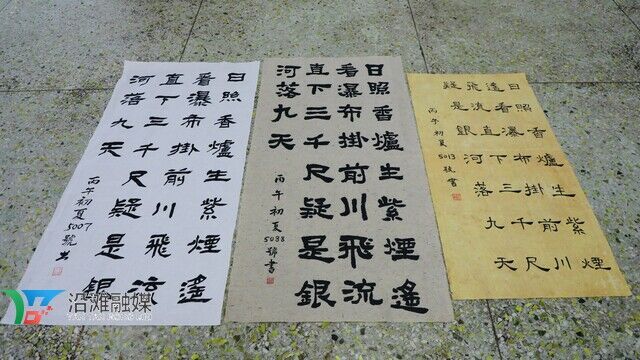 日照香爐生紫煙遙
看瀑布掛前川飛流
直下三千尺疑是銀
河落九天
丙午初夏5007號
日照香爐生紫煙遙
看瀑布掛前川飛流
直下三千尺疑是銀
河落九天
丙午初夏5038號書
日照香爐生紫煙
遙看瀑布掛前川
飛流直下三千尺
疑是銀河落九天
丙午初夏5013號書
沿滩融媒